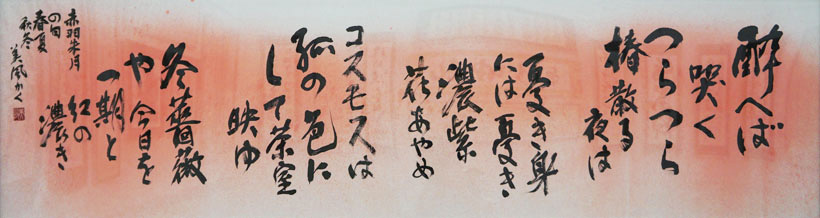 酔へば
哭く
つらつら
椿散る
夜は
憂き身
には憂き
濃紫
花あやめ
コスモスは
孤の色に
して茶室
映ゆ
冬薔薇
や今日を
一期と
紅の
濃き
赤羽朱月
の句
春夏
秋冬
美風かく